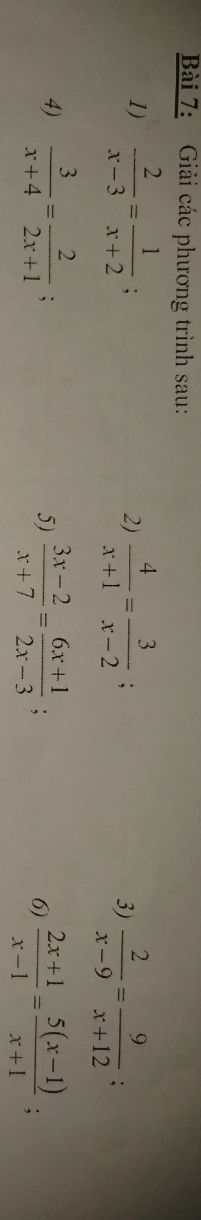 Bài 7: Giải các phương trình sau:
1) 2/(x−3) = 1/(x+2); 2) 4/(x+1) = 3/(x−2); 3) 2/(x−9) = 9/(x+12);
4) 3/(x+4) = 2/(2x+1); 5) (3x−2)/(x+7) = (6x+1)/(2x−3); 6) (2x+1)/(x−1) = 5(x−1)/(x+1);